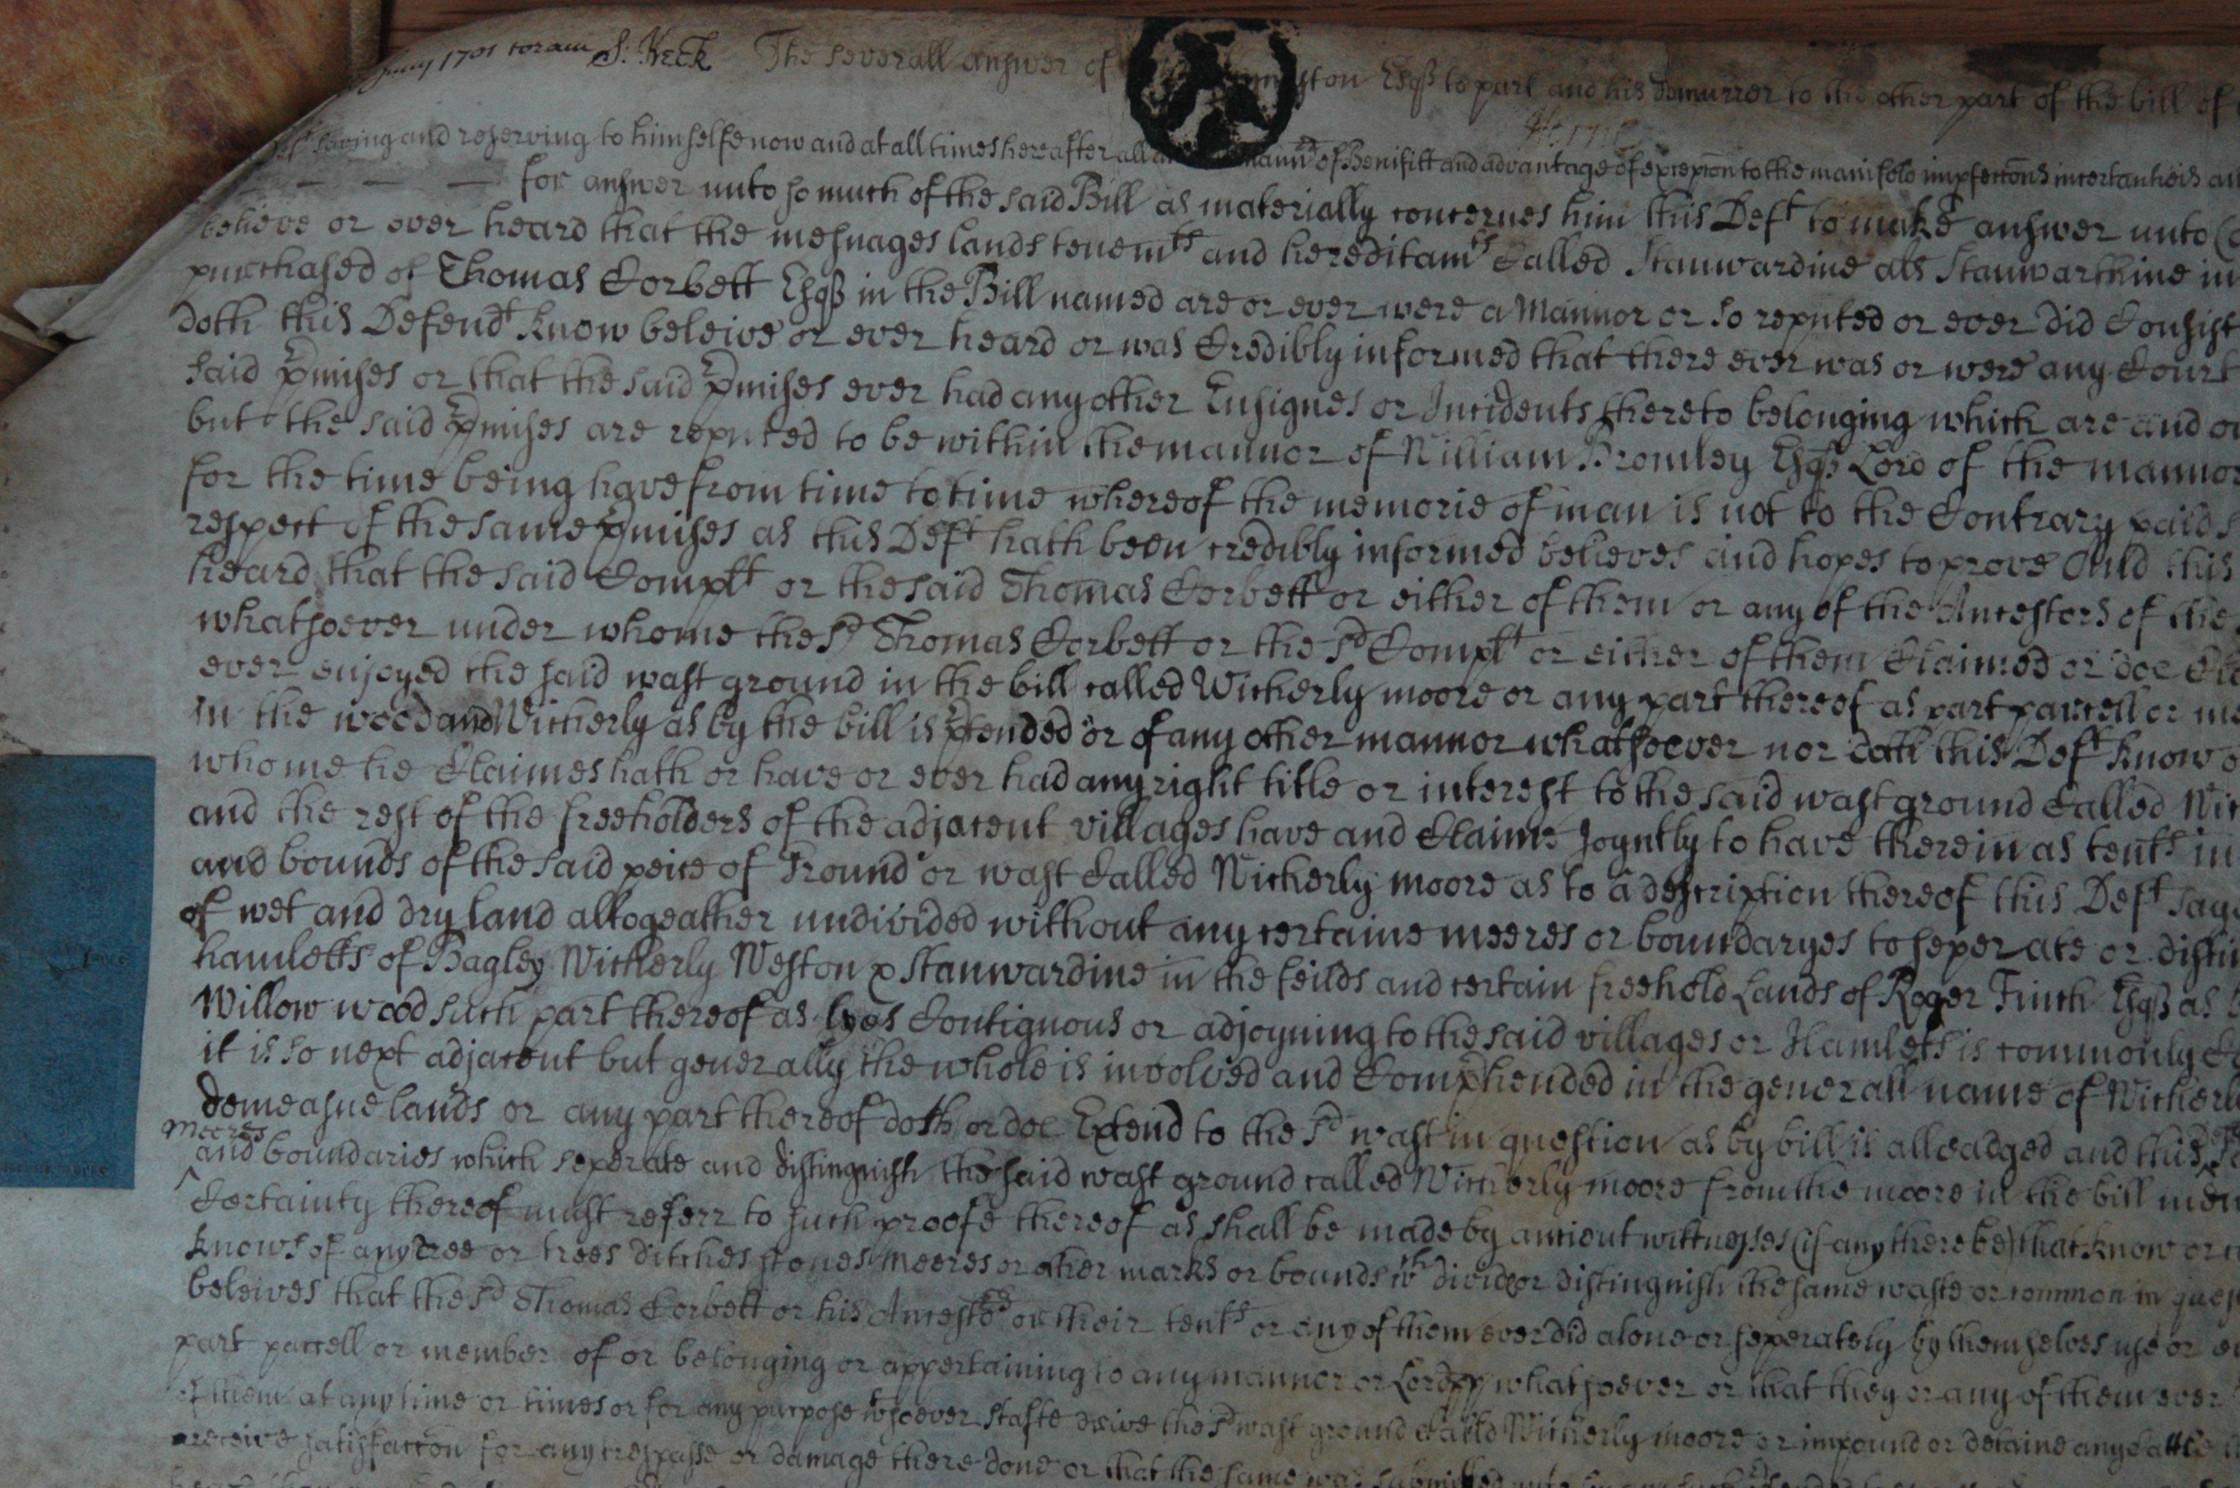 1701 coram S: Keck The severall answer of Esqß to part and his demurrer to the other part of the bill of
saving and reserving to himselfe now and at all times hereafter all of Benifitt and advantage of excepcon to the manifold impfeccons incertainties
for answer unto so much of the said Bill as materially concernes him this Deft to make answer unto
believe or ever heard that the mesuages lands tenemts and hereditamts Called Stanwardine als Stanwarthine in
purchased of Thomas Corbett Esqß in the Bill named are or ever were a Mannor or so reputed or ever did Consist
doth this Defendt know beleive or ever heard or was Credibly informed that there ever was or were any Court
said pmises or that the said pmises ever had any other Ensignes or Incidents thereto belonging which are and
but the said pmises are reputed to be within the mannor of William Bromley Esqß Lord of the mannor
for the time being have from time to time whereof the memorie of man is not to the Contrary paid
respect of the same pmises as this Deft hath been credibly informed believes and hopes to prove And this
heard that the said Complt or the said Thomas Corbett or either of them or any of the Ancestors of the
whatsoever under whome the sd Thomas Corbett or the sd Complt or either of them Claimed or doe
ever enjoyed the said wast ground in the bill called Witherly moore or any part thereof as part parcell or
in the wood and Witherly as by the bill is ptended or of any other mannor whatsoever nor doth this Deft know
whome he Claimes hath or have or ever had any right title or interest to the said wast ground Called
and the rest of the freeholders of the adjacent villages have and Claime Joyntly to have therein as tents in
and bounds of the said peice of Ground or wast Called Witherly moore as to a description thereof this Deft
of wet and dry land altogeather undivided without any certaine meeres or boundaryes to seperate or
hamletts of Bagley Witherly Weston & Stanwardine in the feilds and certain freehold Lands of Roger Finch Esqß as
Willow wood such part thereof as lyes Contiguous or adjoyning to the said villages or Hamletts is commonly
it is so next adjacent but generally the whole is involved and Comphended in the generall name of Witherly
demeasne lands or any part thereof doth or doe Extend to the sd wast in question as by bill is alleadged and this
meeres
and boundaries which seperate and distinguish the said wast ground called Witherly moore from the moore in the bill
Certainty thereof must referr to such proofe thereof as shall be made by antient wittnesses (if any there be) that know or
knows of any tree or trees ditches stones meeres or other marks or bounds wch divide or distinguish the same waste or common in
beleives that the sd Thomas Corbett or his Ancestors or their tents or any of them ever did alone or seperately by themselves use or
part parcell or member of or belonging or appertaining to any mannor or Lordpp whatsoever or that they or any of them ever
of them at any time or times or for any purpose whsoever staffe drive the sd wast ground Called Witherly moore or impound or detaine any Cattle
receive satisfaccon for any trespasse or damage there done or that the same was